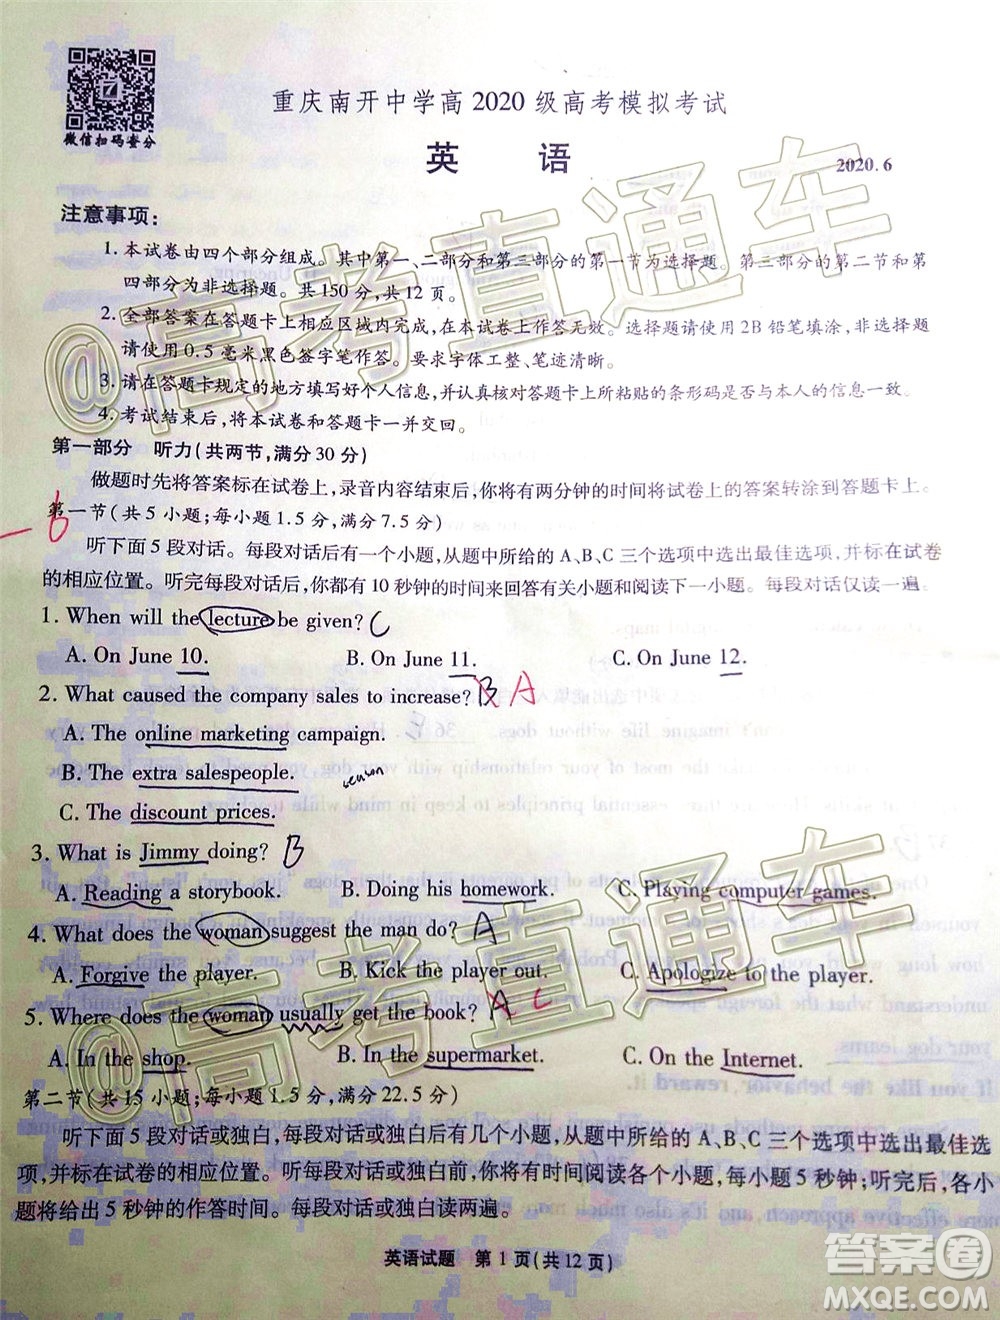 微信扫码查分
重庆南开中学高2020级高考模拟考试
英 语
2020.6
注意事项：
1. 本试卷由四个部分组成。其中第一、二部分和第三部分的第一节为选择题。第三部分的第二节和第
四部分为非选择题。共150分，共12页。
2. 全部答案在答题卡上相应区域内完成，在本试卷上作答无效。选择题请使用2B铅笔填涂，非选择
题请使用0.5毫米黑色签字笔作答。要求字体工整、笔迹清晰。
3. 请在答题卡规定的地方填写好个人信息，并认真核对答题卡上所粘贴的条形码是否与本人的信息一致。
4. 考试结束后，将本试卷和答题卡一并交回。
第一部分 听力（共两节，满分30分）
做题时先将答案标在试卷上，录音内容结束后，你将有两分钟的时间将试卷上的答案转涂到答题卡上。
第一节（共5小题；每小题1.5分，满分7.5分）
-6
听下面5段对话。每段对话后有一个小题，从题中所给的A、B、C三个选项中选出最佳选项，并标在试卷
的相应位置。听完每段对话后，你都有10秒钟的时间来回答有关小题和阅读下一小题。每段对话仅读一遍。
1. When will the lecture be given? C
A. On June 10. B. On June 11. C. On June 12.
2. What caused the company sales to increase? B A
A. The online marketing campaign.
B. The extra salespeople.
C. The discount prices.
3. What is Jimmy doing? B
A. Reading a storybook. B. Doing his homework. C. Playing computer games.
4. What does the woman suggest the man do? A
A. Forgive the player. B. Kick the player out. C. Apologize to the player.
5. Where does the woman usually get the book? A C
A. In the shop. B. In the supermarket. C. On the Internet.
第二节（共15小题；每小题1.5分，满分22.5分）
听下面5段对话或独白，每段对话或独白后有几个小题，从题中所给的A、B、C三个选项中选出最佳选
项，并标在试卷的相应位置。听每段对话或独白前，你将有时间阅读各个小题，每小题5秒钟；听完后，各小
题将给出5秒钟的作答时间。每段对话或独白读两遍。
英语试题 第1页（共12页）
@高考直通车
@高考直通车
答案卷
MXQE.COM